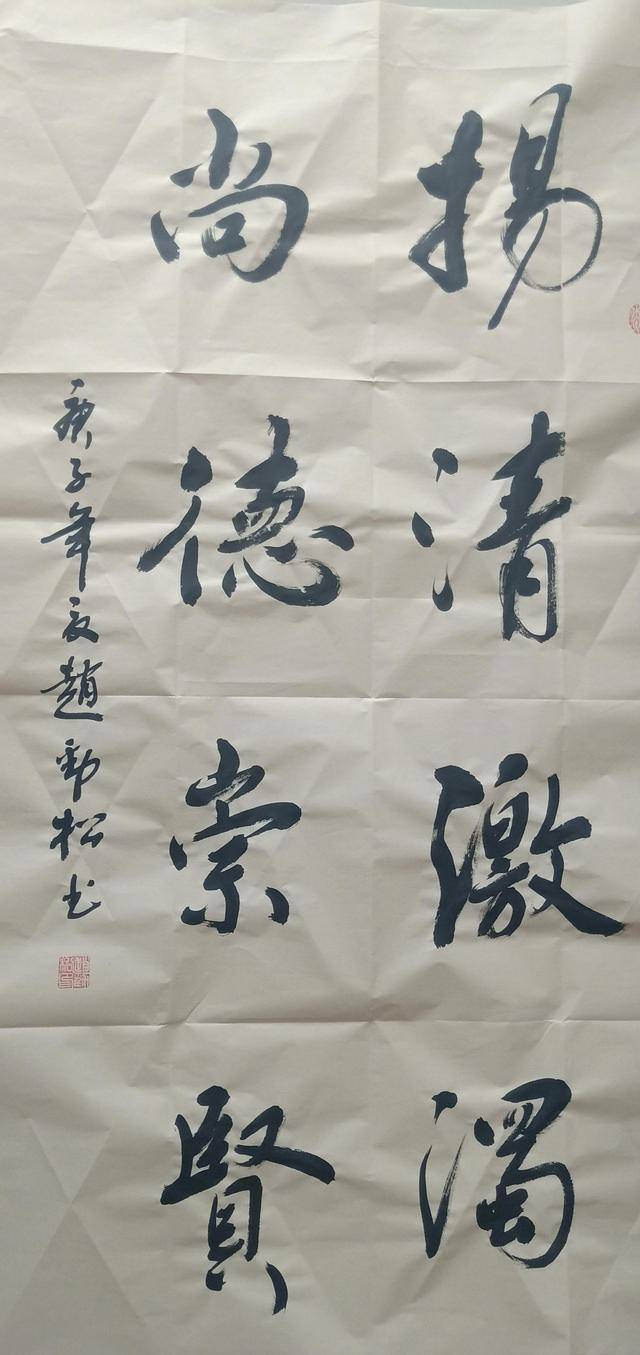 揚清激濁
尚德崇賢
庚子年夏趙勁松书